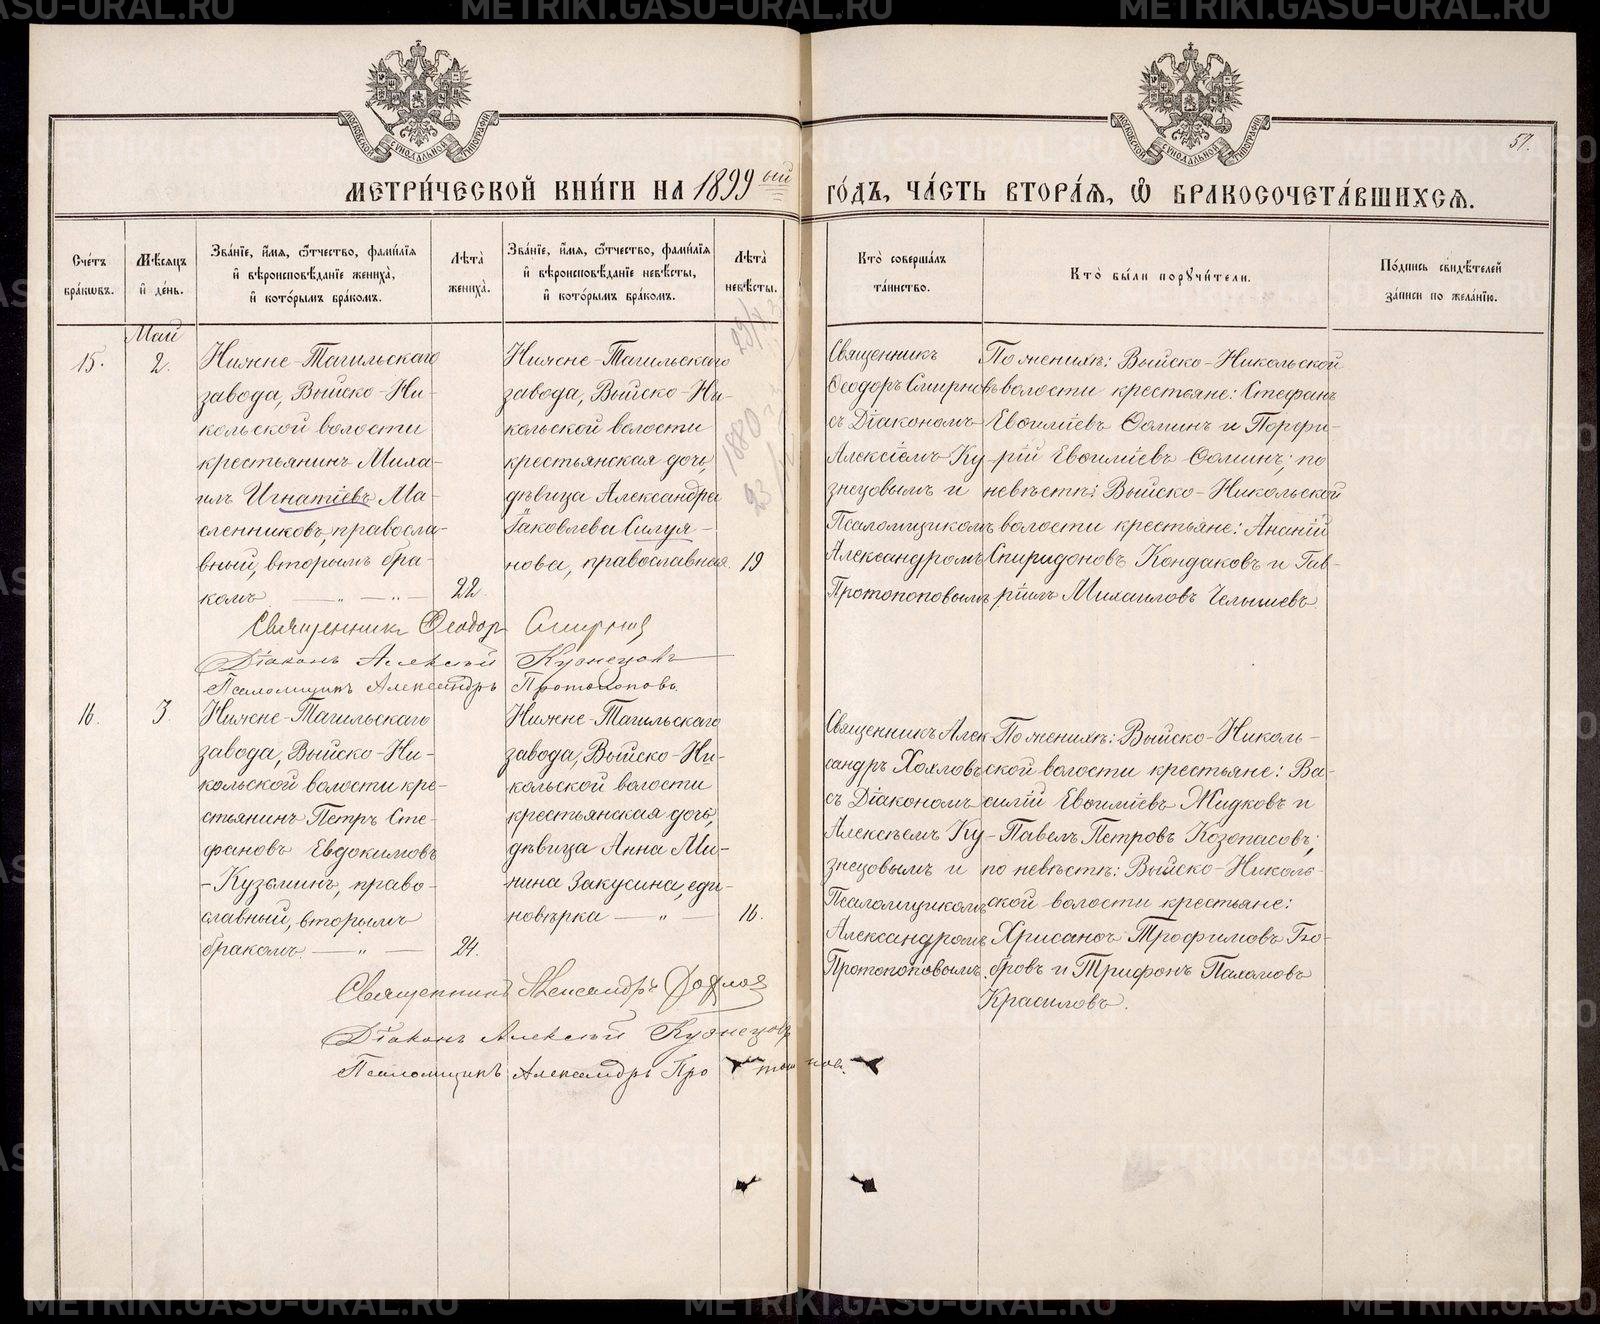 METRIKI.GASO-URAL.RU
МОСКОВСКОЙ СУНОДАЛЬНОЙ ТИПОГРАФІИ
МОСКОВСКОЙ СУНОДАЛЬНОЙ ТИПОГРАФІИ
51.
МЕТРИ́ЧЕСКОЙ КНИ́ГИ НА 1899 ый ГО́ДЪ, ЧА́СТЬ ВТОРА́Ѧ, Ѽ БРАКОСОЧЕТА́ВШИХСѦ.
Сче́тъ бра́кѡвъ.
Мѣ́сяцъ и҆ де́нь.
Зва́нїе, и҆́мя, ѻ҆́тчество, фами́лїя и҆ вѣроисповѣ́данїе жениха̀, и҆ кото́рымъ бра́комъ.
Лѣ́та жениха̀.
Зва́нїе, и҆́мя, ѻ҆́тчество, фами́лїя и҆ вѣроисповѣ́данїе невѣ́сты, и҆ кото́рымъ бра́комъ.
Лѣ́та невѣ́сты.
Кто̀ соверша́лъ та́инство.
Кто̀ бы́ли порꙋчи́тели.
По́дпись свидѣ́телей за́писи по жела́нїю.
Май
15.
2.
Нижне-Тагильскаго
завода, Выйско-Ни-
кольской волости
крестьянинъ Миха-
илъ Игнатіевъ Ма-
сленниковъ, правосла-
вный, вторымъ бра-
комъ
22.
Нижне-Тагильскаго
завода, Выйско-Ни-
кольской волости
крестьянская дочь,
дѣвица Александра
Іаковлева Силуя-
нова, православная.
19
1880
Священникъ
Ѳеодоръ Смирновъ
съ Діакономъ
Алексіемъ Ку-
знецовымъ и
Псаломщикомъ
Александромъ
Протопоповымъ
По женихѣ: Выйско-Никольской
волости крестьяне: Стефанъ
Евѳиміевъ Ѳоминъ и Порфи-
рій Евѳиміевъ Ѳоминъ; по
невѣстѣ: Выйско-Никольской
волости крестьяне: Ананій
Спиридоновъ Кондаковъ и Гав-
ріилъ Михаиловъ Челышевъ
Священникъ Ѳеодоръ Смирновъ
Діаконъ Алексѣй Кузнецовъ
Псаломщикъ Александръ Протопоповъ.
16.
3.
Нижне-Тагильскаго
завода, Выйско-Ни-
кольской волости кре-
стьянинъ Петръ Сте-
фановъ Евдокимовъ
-Кузьминъ, право-
славный, вторымъ
бракомъ
24.
Нижне-Тагильскаго
завода, Выйско-Ни-
кольской волости
крестьянская дочь,
дѣвица Анна Ми-
нина Закусина, еди-
новѣрка
16.
Священникъ Алек-
сандръ Хохловъ
съ Діакономъ
Алексѣемъ Ку-
знецовымъ и
Псаломщикомъ
Александромъ
Протопоповымъ.
По женихѣ: Выйско-Николь-
ской волости крестьяне: Ва-
силій Евѳиміевъ Жидковъ и
Павелъ Петровъ Козопасовъ;
по невѣстѣ: Выйско-Николь-
ской волости крестьяне:
Хрисанѳъ Трофимовъ Бо-
бровъ и Трифонъ Пахомовъ
Красиловъ.
Священникъ Александръ Хохловъ
Діаконъ Алексѣй Кузнецовъ
Псаломщикъ Александръ Протопоповъ.